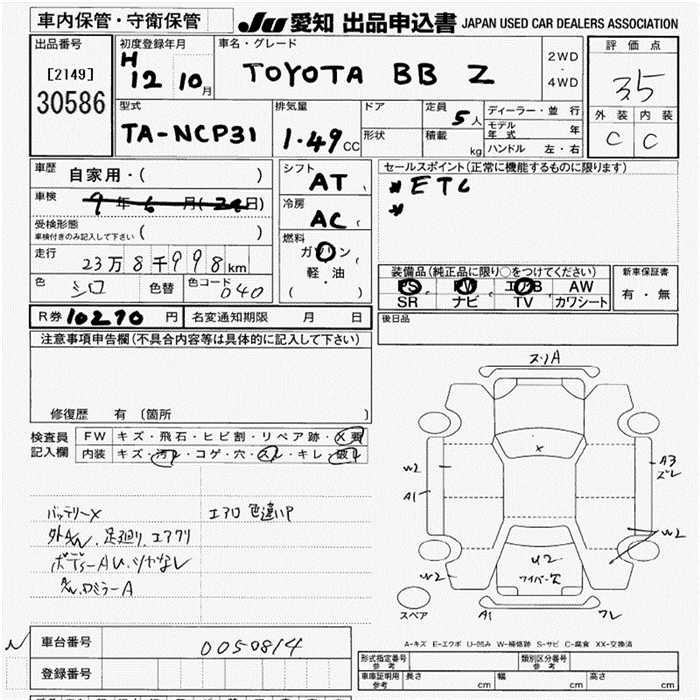 車内保管・守衛保管
JU 愛知 出品申込書 JAPAN USED CAR DEALERS ASSOCIATION
出品番号
[2149]
30586
初度登録年月
H
12 10月
車名・グレード
TOYOTA BB Z
2WD
・
4WD
評価点
3.5
外装 内装
C C
型式
TA-NCP31
排気量
1.49 CC
ドア
形状
定員
5人
積載
kg
ディーラー・並行
モデル年式 年
ハンドル 左・右
車歴
自家用・( )
車検
9年6月(24日)
受検形態
車検付きのみ記入して下さい ( )
走行
23万8千998km
色
シロ
色替
色コード
040
シフト
AT
冷房
AC
燃料
ガソリン
軽・油
( )
セールスポイント(正常に機能するものに限ります)
* ETC
*
装備品(純正品に限り○をつけてください)
PS PW エアB AW
SR ナビ TV カワシート
新車保証書
有・無
R券 10270 円
名変通知期限 月 日
後日品
注意事項申告欄(不具合内容等は具体的に記入して下さい)
修復歴 有(箇所 )
検査員
記入欄
FW キズ・飛石・ヒビ割・リペア跡・X要
内装 キズ・汚レ・コゲ・穴・スレ・キレ・破レ
バッテリーX
エアロ 色違いP
外A/W、足廻り、エアクリ
ボディーAU、ツヤなし
A/W、ロミラーA
スリA
X
W2
A1
A3
ズレ
W2
W2
U2
ワイパー欠
A1
ワレ
スペア
A-キズ E-エクボ U-凹み W-補修跡 S-サビ C-腐食 XX-交換済
車台番号
0050814
登録番号
形式指定番号
参考
類別区分番号
参考
車庫証明用
参考
長さ cm
幅 cm
高さ cm